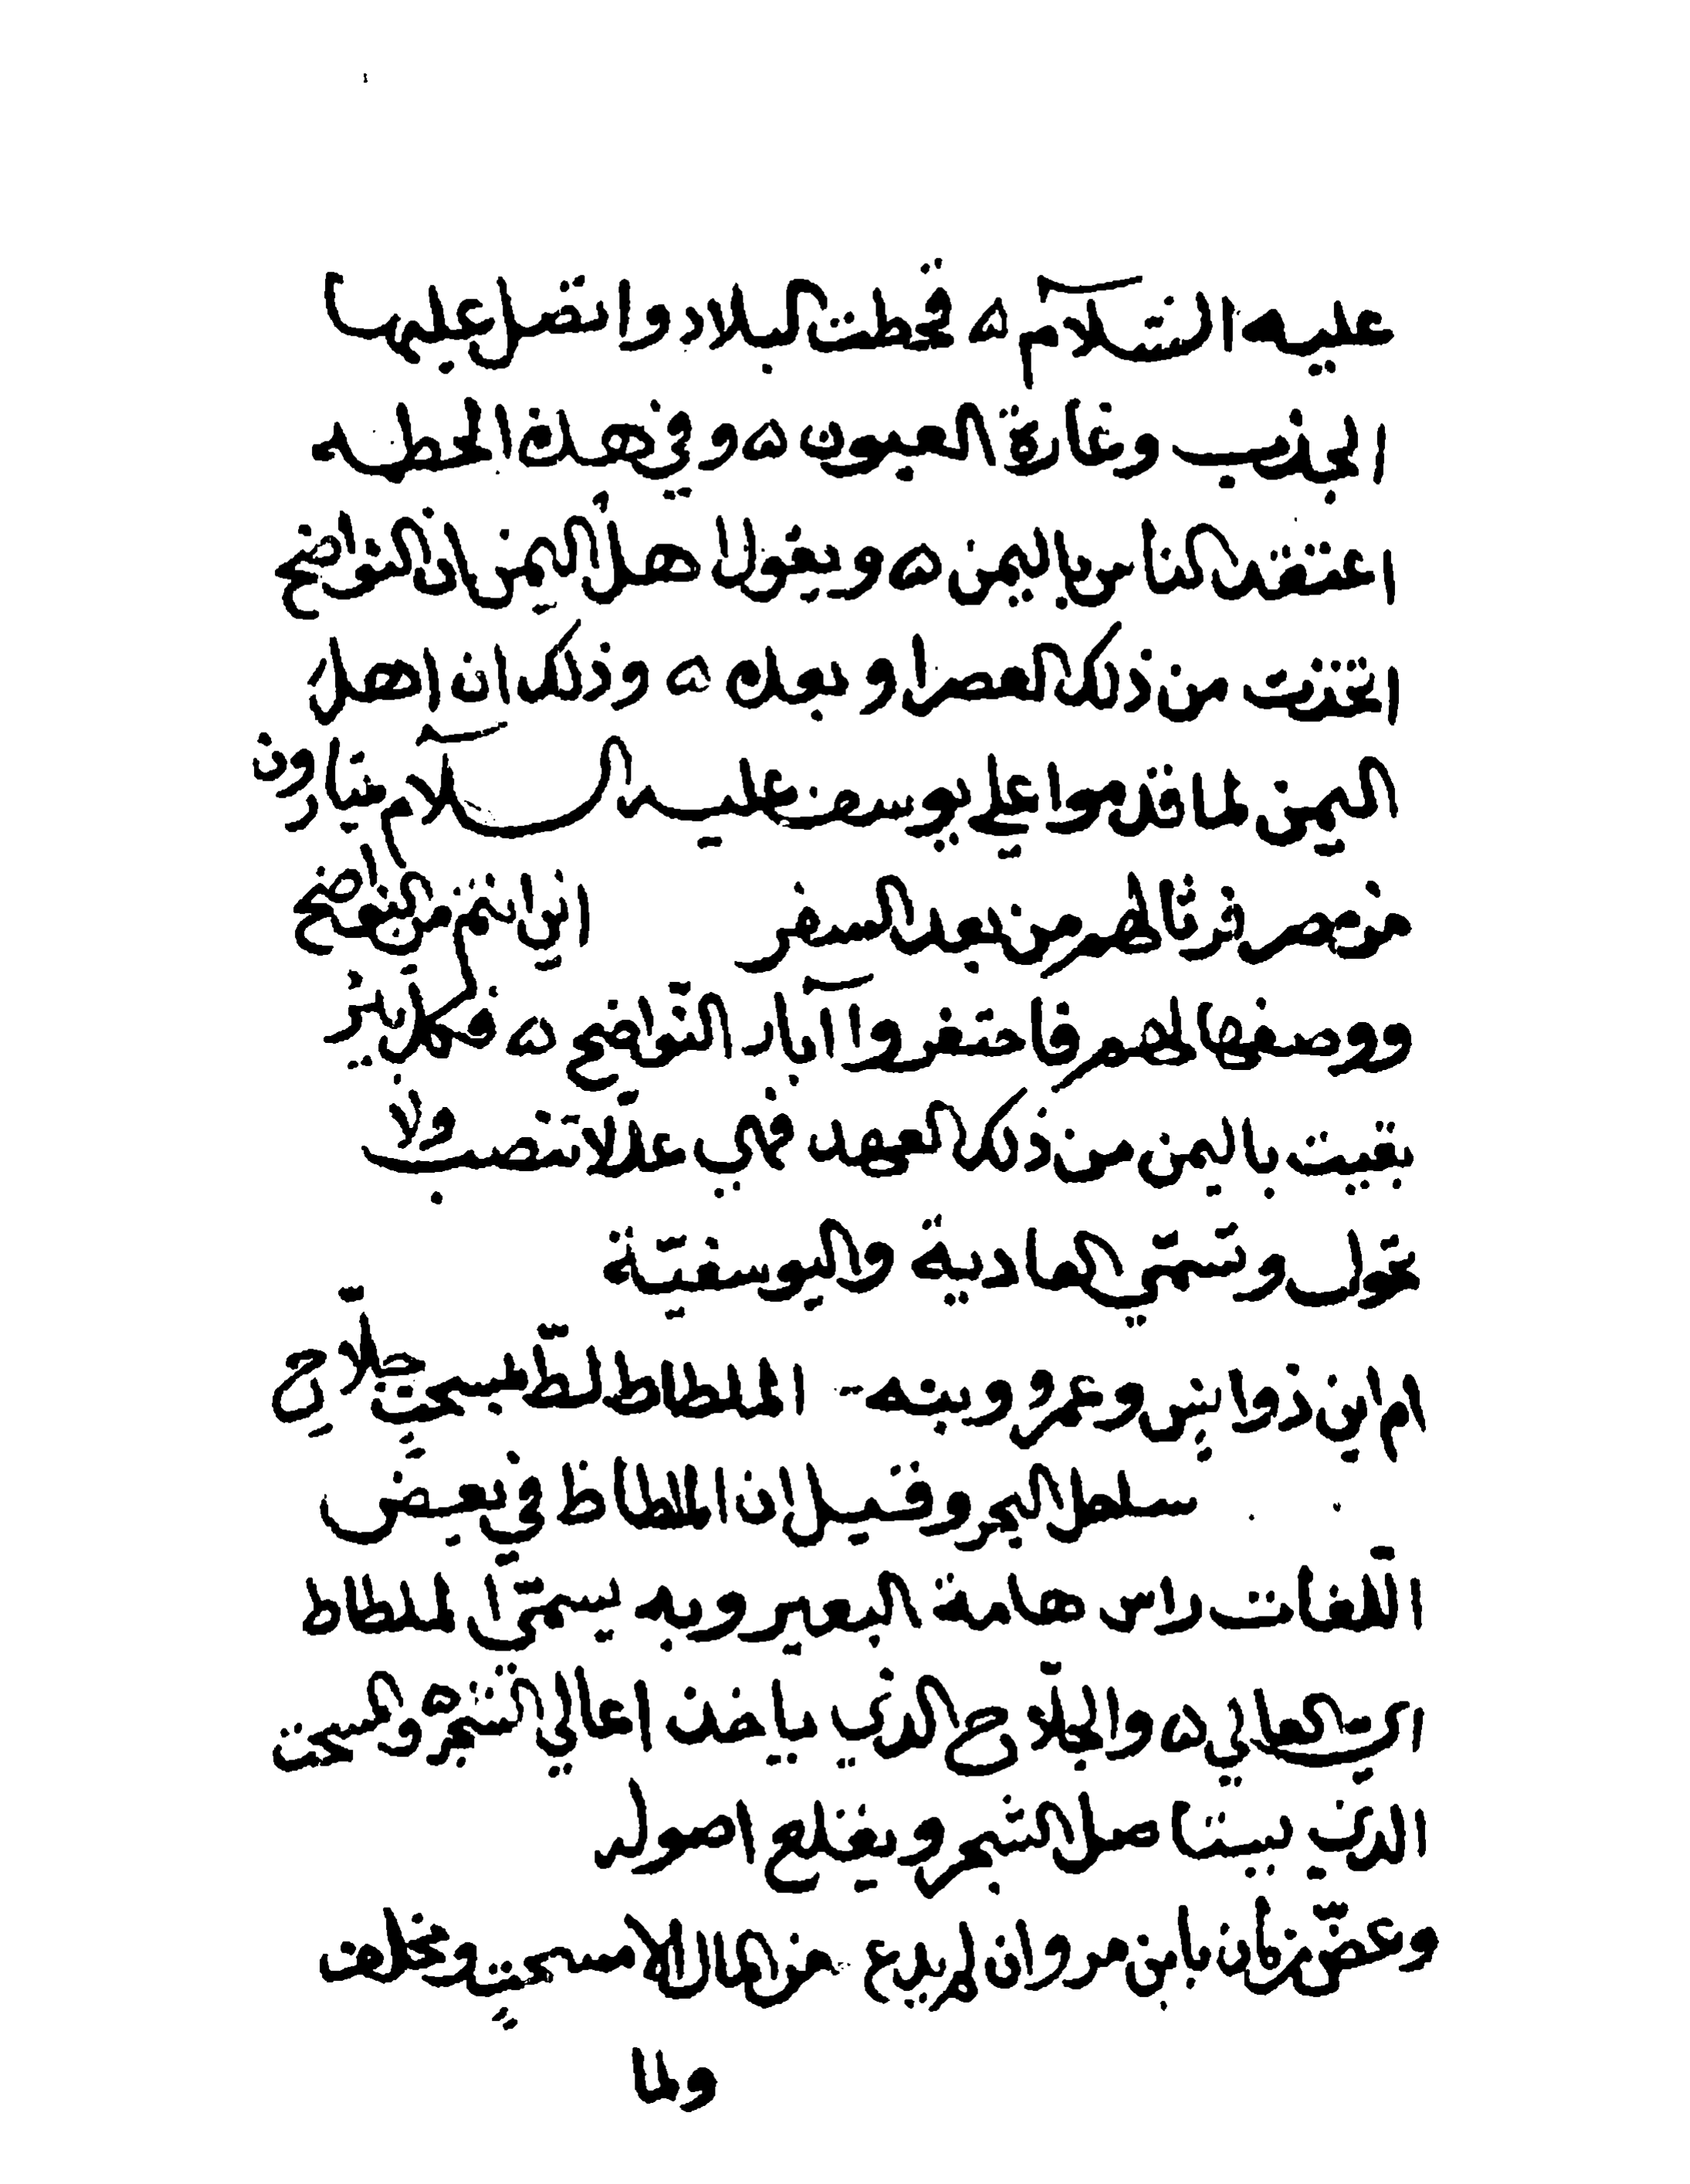 عليه السّلام ه قحطت البلاد واتصل عليها
الجذب وغارة العيون ه وفي هذه الحطمه
اعتقد الناس باليمن ه ويقول اهلُ اليمن ان النواضح
اتخذت من ذلك العصر او بعده ه وذلك ان اهل
اليمن لما قدموا علي يوسف عليه السلام يتارون
من مصر فرثا لهم من بعد السفر اين انتم من النواضح
ووصفها لهم فاحتفروا آبار النّواضح ه فكل بير
بقيت باليمن من ذلك العهد فهي عدّ لا تنصب ولا
تحول وتسمّي العادية واليوسفيّة
ام اين ذوا وعمرو وبنه الملطاط لطّ بمسحتٍ جلّاحِ
ساحل البحر وقيل ان الملطاط في بعض
اللّغات راس هامة البعير وبه يسمّى الملطاط
اي العالي ه والجلّاح الذي ياخذ اعالي الشّجر والمسحت
الذي يستاصل الشجر ويقلع اصوله
وعضّ زمان بابن مروان لم يدع من المال الا مسحتٍ ومخلف
ولما